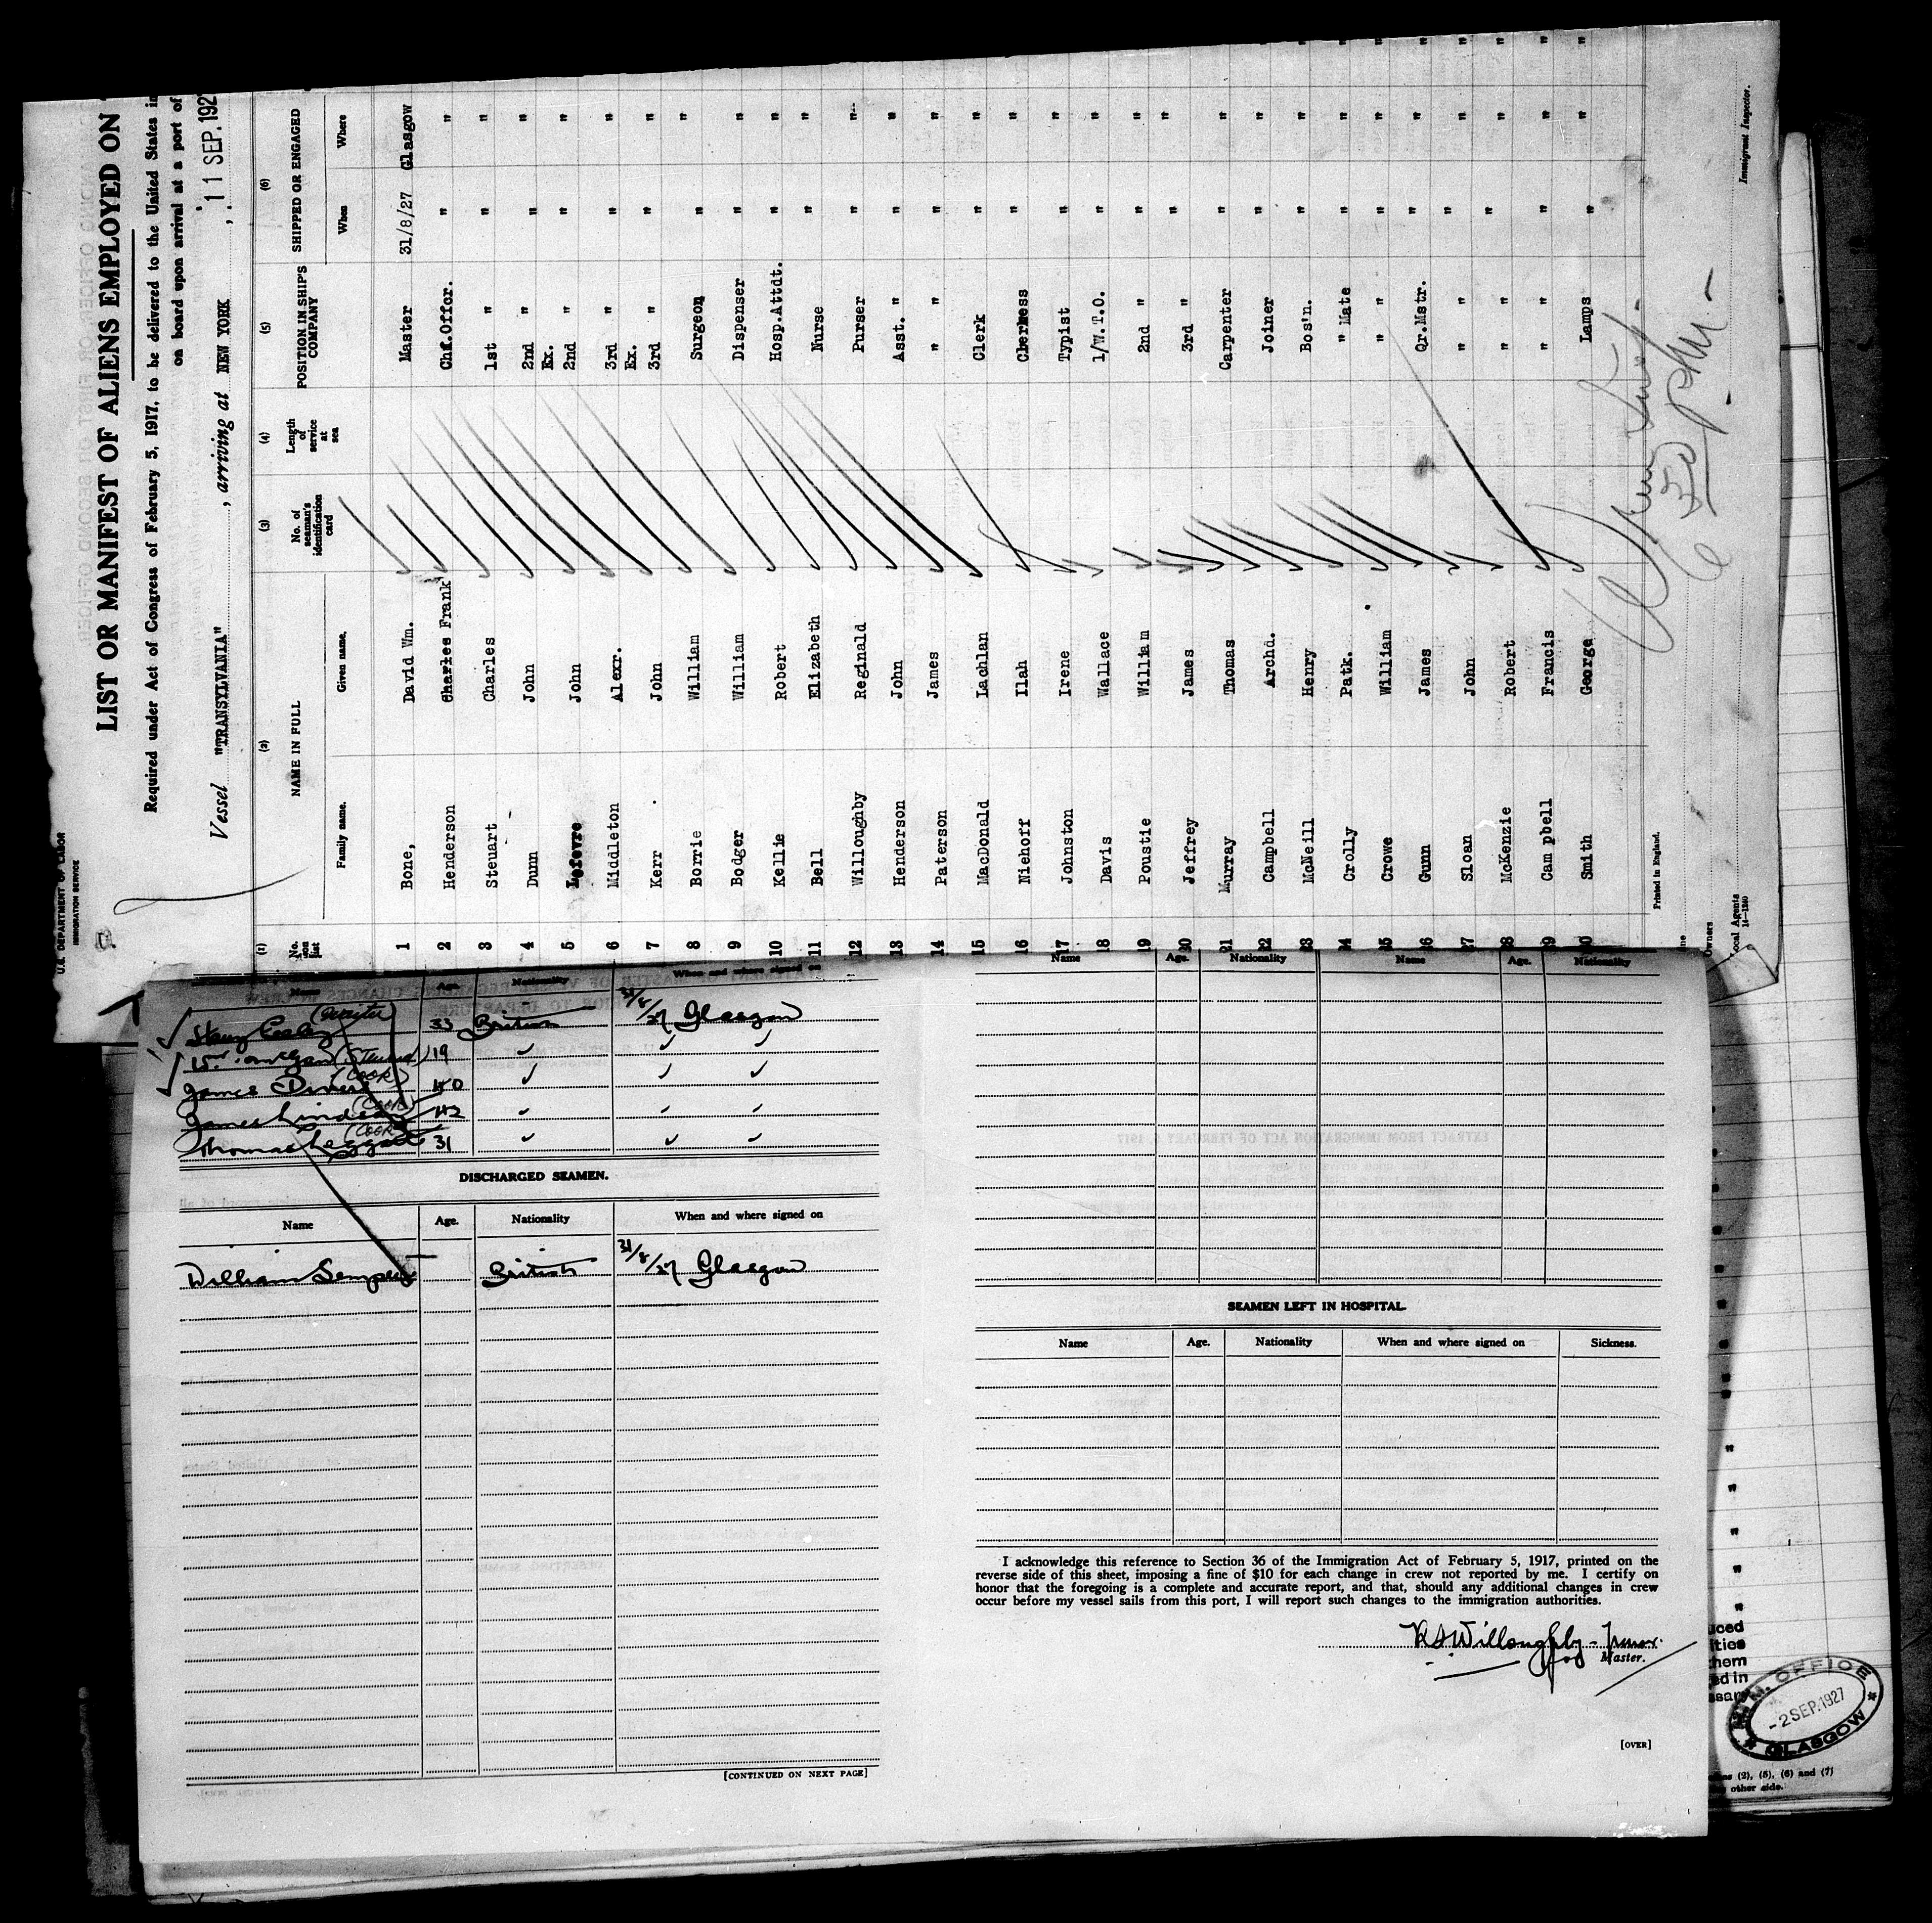 U.S. DEPARTMENT OF LABOR
IMMIGRATION SERVICE
LIST OR MANIFEST OF ALIENS EMPLOYED ON
Required under Act of Congress of February 5, 1917, to be delivered to the United States in
on board upon arrival at a port of
Vessel "TRANSYLVANIA", arriving at NEW YORK, 11 SEP. 192
(1) (2) (3) (4) (5) (6)
No. on list NAME IN FULL No. of seaman's identification card Length of service at sea POSITION IN SHIP'S COMPANY SHIPPED OR ENGAGED
Family name. Given name. When Where
1 Bone, David Wm. Master 31/8/27 Glasgow
2 Henderson Charles Frank Chf.Offcr. " "
3 Steuart Charles 1st " " "
4 Dunn John 2nd " " "
5 Lefevre John Ex. 2nd " " "
6 Middleton Alexr. 3rd " " "
7 Kerr John Ex. 3rd " " "
8 Borrie William Surgeon " "
9 Bodger William Dispenser " "
10 Kellie Robert Hosp.Attdt. " "
11 Bell Elizabeth Nurse " "
12 Willoughby Reginald Purser " "
13 Henderson John Asst. " " "
14 Paterson James " " " "
15 MacDonald Lachlan Clerk " "
16 Niehoff Ilah " "
17 Johnston Irene Typist " "
18 Davis Wallace 1/W.T.O. " "
19 Poustie William 2nd " " "
20 Jeffrey James 3rd " " "
21 Murray Thomas Carpenter " "
22 Campbell Archd. Joiner " "
23 McNeill Henry Bos'n. " "
24 Crolly Patk. " Mate " "
25 Crowe William " " " "
26 Gunn James Qr.Mstr. " "
27 Sloan John " " "
28 McKenzie Robert " " "
29 Campbell Francis " " "
30 Smith George Lamps " "
Printed in England.
Immigrant Inspector.
Owners
Local Agents
14-1240
Name Age. Nationality When and where signed on
33 British 31/8/27 Glasgow
(Steward) 19
James (Cook) 40
James Lindsay (Cook) 42
Thomas Leggate (Cook) 31
DISCHARGED SEAMEN.
Name Age. Nationality When and where signed on
William Semple British 31/8/27 Glasgow
[CONTINUED ON NEXT PAGE]
Name Age. Nationality Name Age. Nationality
SEAMEN LEFT IN HOSPITAL.
Name Age. Nationality When and where signed on Sickness.
I acknowledge this reference to Section 36 of the Immigration Act of February 5, 1917, printed on the
reverse side of this sheet, imposing a fine of $10 for each change in crew not reported by me. I certify on
honor that the foregoing is a complete and accurate report, and that, should any additional changes in crew
occur before my vessel sails from this port, I will report such changes to the immigration authorities.
Willoughby - Purser.
Master.
[OVER]
OFFICE
-2 SEP.1927
GLASGOW
(2), (5), (6) and (7)
other side.